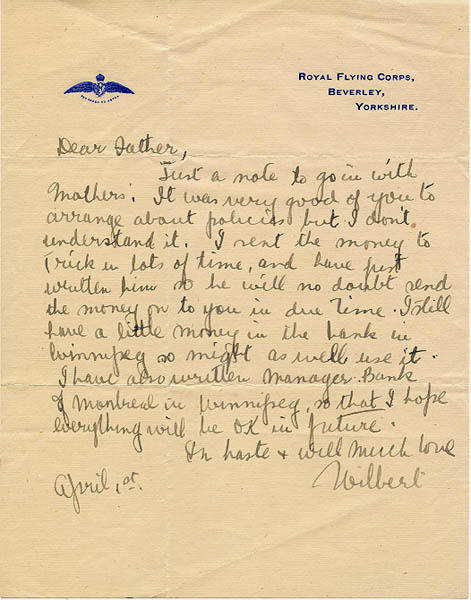 Royal Flying Corps,
Beverley,
Yorkshire.
Dear Father,
Just a note to go in with
Mothers. It was very good of you to
arrange about policies but I don't
understand it. I sent the money to
Trick in lots of time, and have just
written him so he will no doubt send
the money on to you in due time. I still
have a little money in the bank in
Winnipeg so might as well use it.
I have also written Manager Bank
of Montreal in Winnipeg, so that I hope
everything will be OK in future.
In haste & will much love
Wilbert
April 1st.